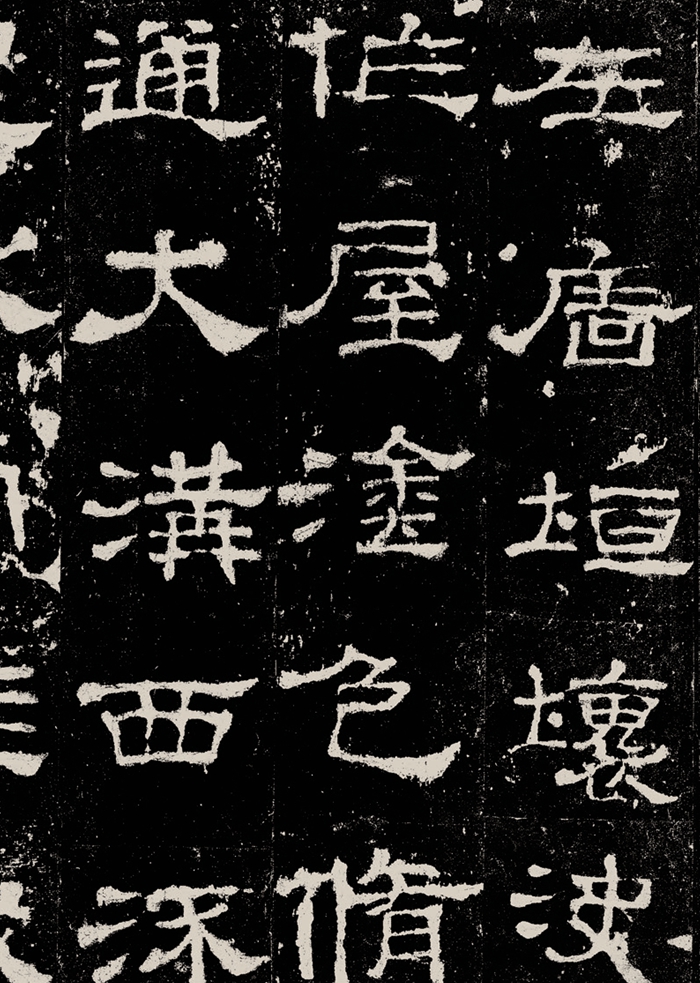 左廧垣壞決
作屋塗色脩
通大溝西流